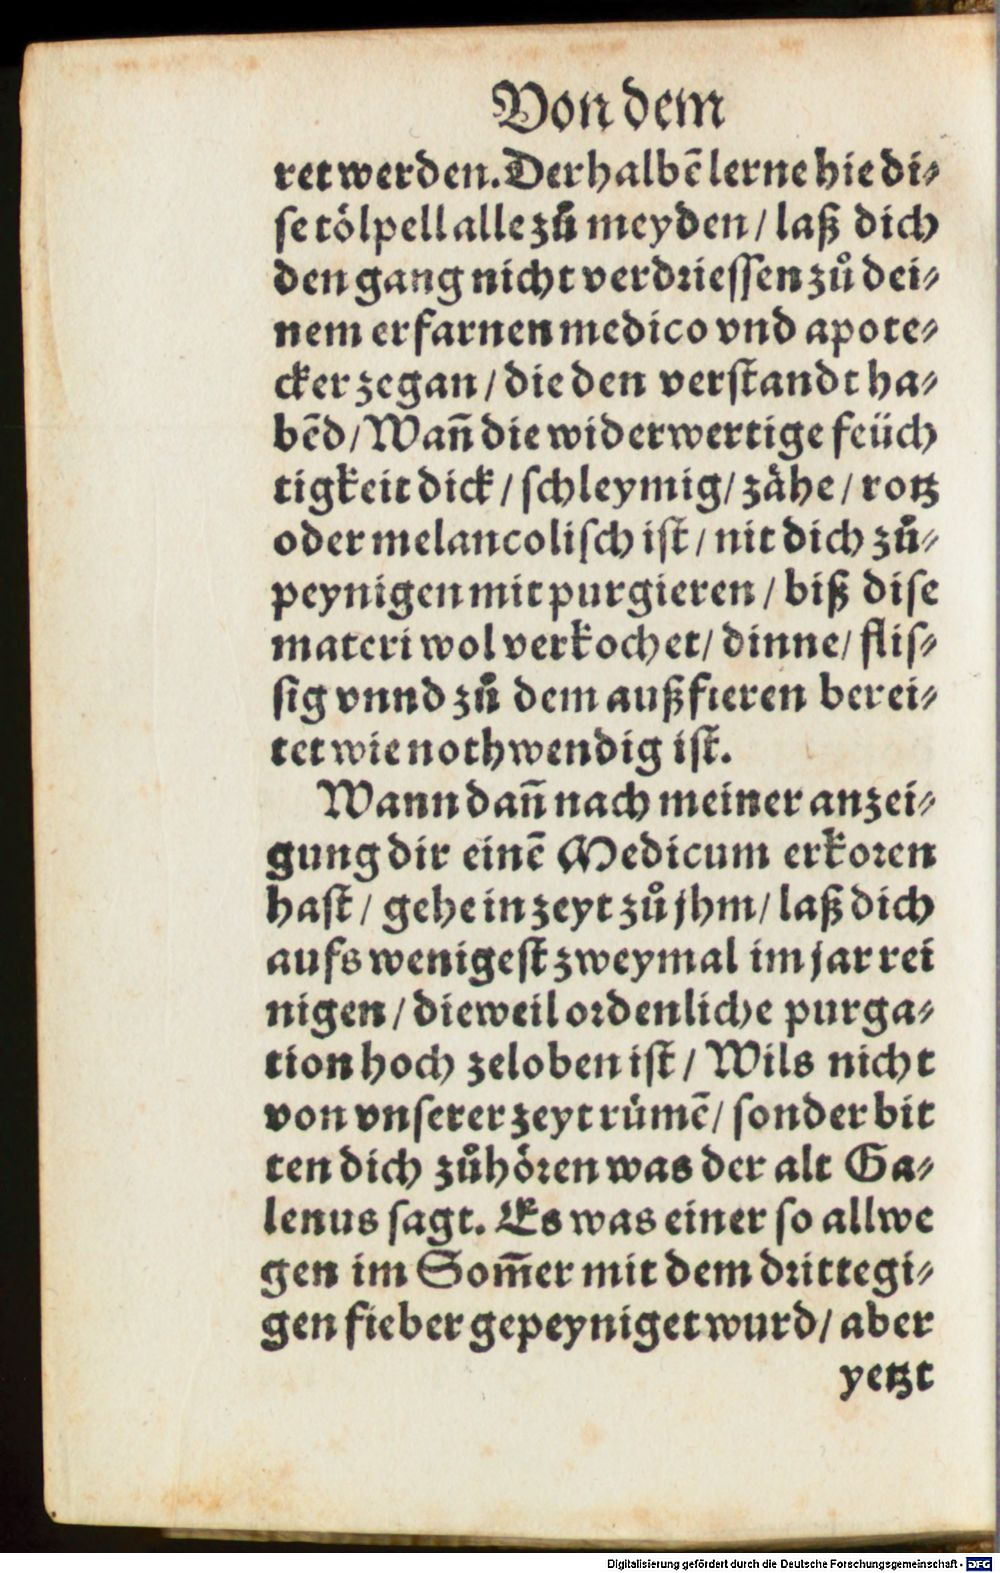 Von dem
ret werden. Derhalbē lerne hie di⸗
se tölpell alle zů meyden / laß dich
den gang nicht verdriessen zů dei⸗
nem erfarnen medico vnd apote⸗
cker zegan / die den verstandt ha⸗
bēd / Wañ die widerwertige feüch
tigkeit dick / schleymig / zåhe / rotz
oder melancolisch ist / nit dich zů⸗
peynigen mit purgieren / biß dise
materi wol verkochet / dinne / flis⸗
sig vnnd zů dem außfieren berei⸗
tet wie nothwendig ist.
Wann dañ nach meiner anzei⸗
gung dir einē Medicum erkoren
hast / gehe in zeyt zů jhm / laß dich
aufs wenigest zweymal im jar rei
nigen / dieweil ordenliche purga⸗
tion hoch zeloben ist / Wils nicht
von vnserer zeyt rümē / sonder bit
ten dich zůhören was der alt Ga⸗
lenus sagt. Es was einer so allwe
gen im Som̄er mit dem drittegi⸗
gen fieber gepeyniget wurd / aber
yetzt
Digitalisierung gefördert durch die Deutsche Forschungsgemeinschaft - DFG